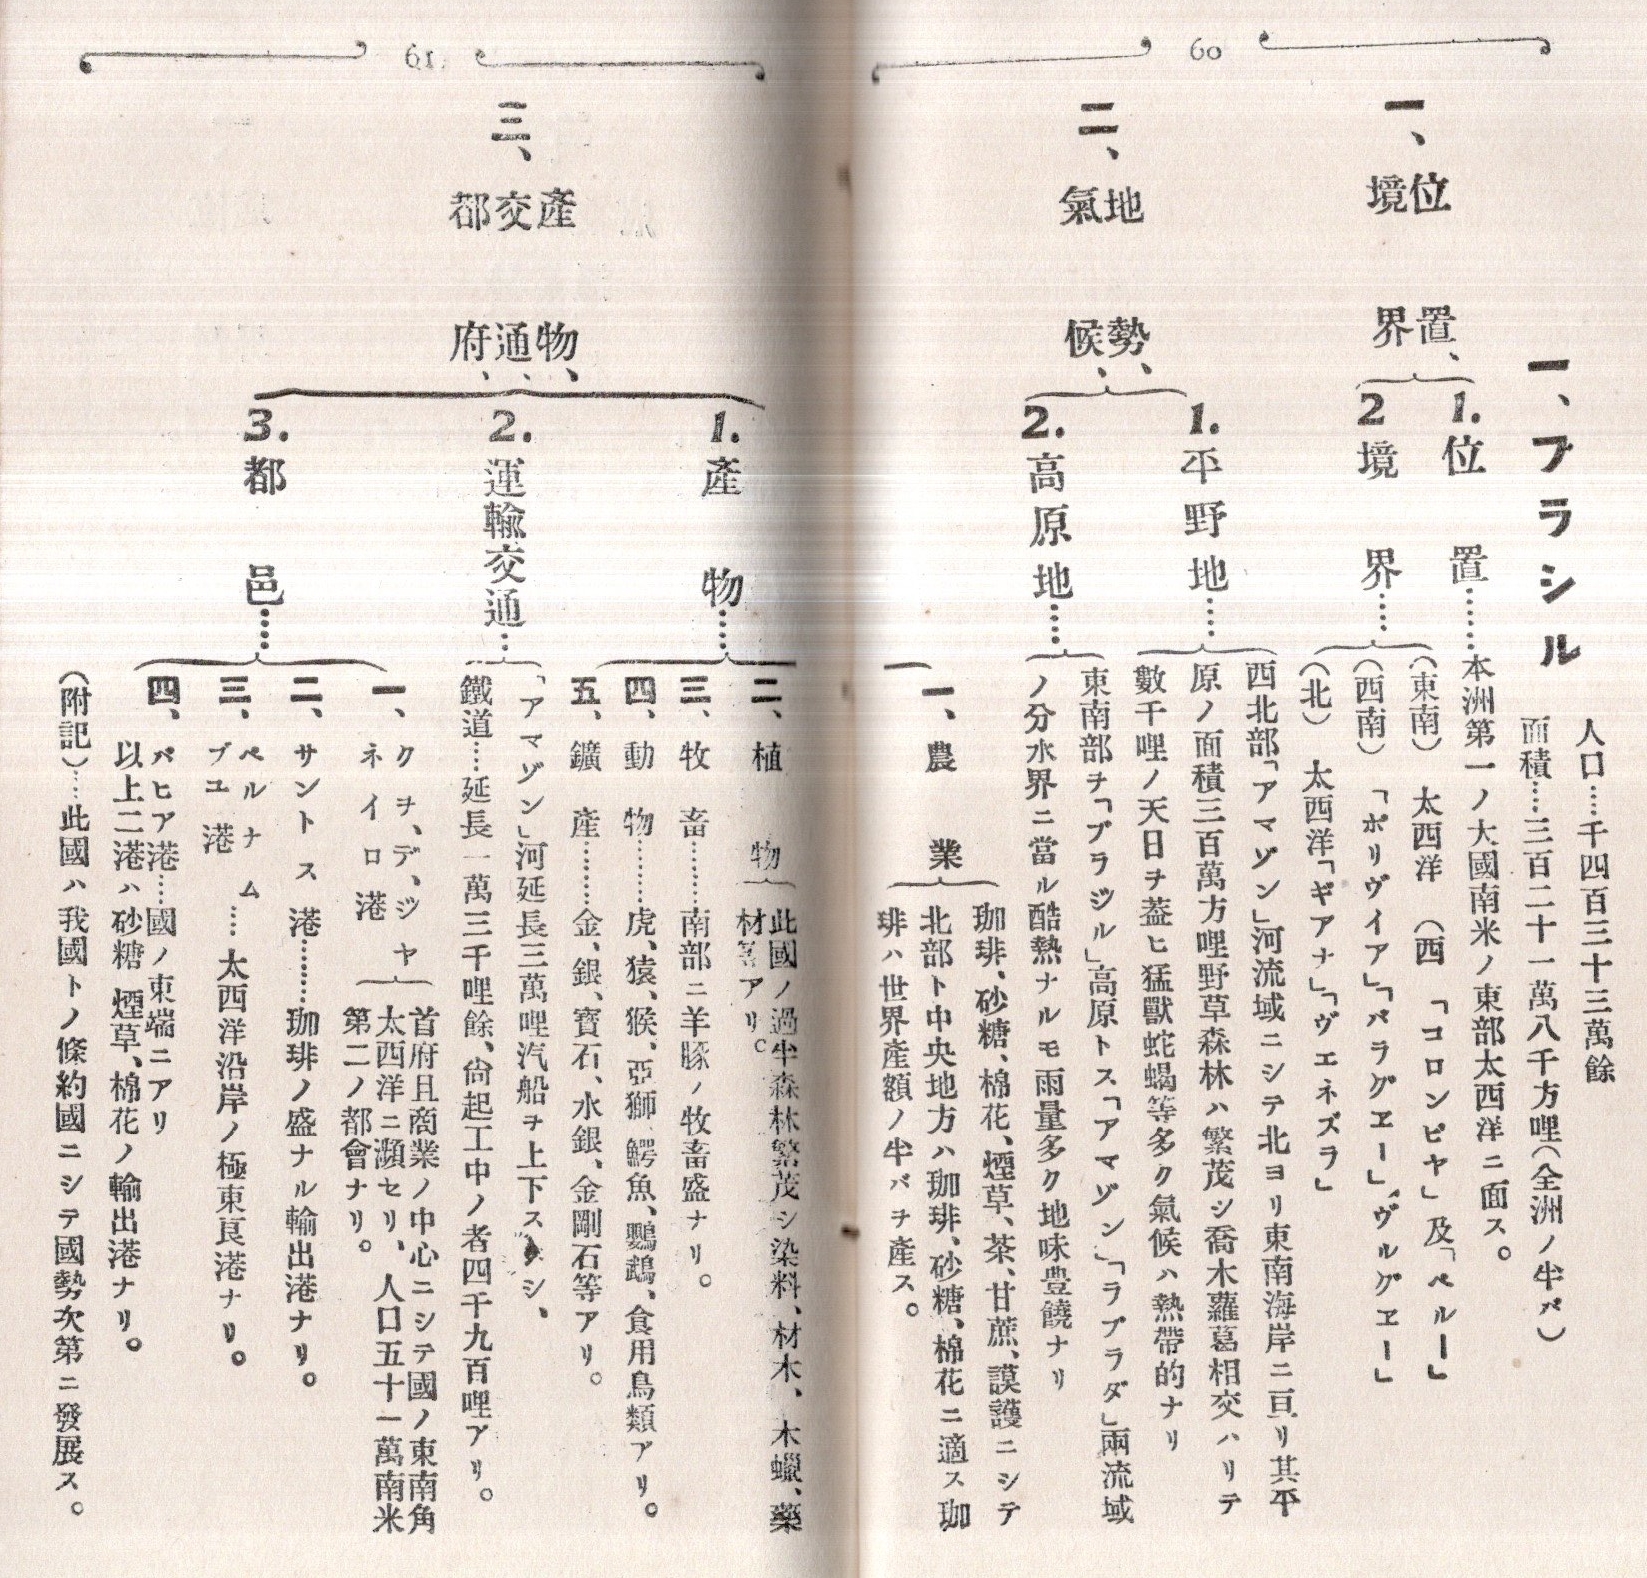 60
一、ブラシル
人口……千四百三十三萬餘
面積……三百二十一萬八千方哩(全洲ノ半バ)
一、位置、境界
1.位置………本洲第一ノ大國南米ノ東部太西洋ニ面ス。
2境界……
(東南) 太西洋 (西 「コロンビヤ」及「ペルー」
(西南) 「ボリヴイア」「パラグエー」、「ヴルグエー」
(北) 太西洋「ギアナ」「ヴエネズラ」
二、地勢、氣候、
1.平野地……
西北部「アマゾン」河流域ニシテ北ヨリ東南海岸ニ亘リ其平
原ノ面積三百萬方哩野草森林ハ繁茂シ喬木蘿葛相交ハリテ
數千哩ノ天日ヲ葢ヒ猛獸蛇蝎等多ク氣候ハ熱帶的ナリ
2.高原地……
東南部ヲ「ブラジル」高原トス「アマゾン」「ラプラダ」兩流域
ノ分水界ニ當ル酷熱ナルモ雨量多ク地味豊饒ナリ
一、農業
珈琲、砂糖、棉花、煙草、茶、甘蔗、護謨ニシテ
北部ト中央地方ハ珈琲、砂糖、棉花ニ適ス珈
琲ハ世界產額ノ半バヲ產ス。
61
三、產物、交通、都府、
1.產物……
二、植物
此國ノ過半森林繁茂シ染料、材木、木蠟、藥
材等アリ。
三、牧畜………南部ニ羊豚ノ牧畜盛ナリ。
四、動物………虎、猿、猴、亞獅、鰐魚、鸚鵡、食用鳥類アリ。
五、鑛產………金、銀、寶石、水銀、金剛石等アリ。
2.運輸交通…
「アマゾン」河延長三萬哩汽船ヲ上下スシ、
鐵道……延長一萬三千哩餘、尙起工中ノ者四千九百哩アリ。
3.都邑……
一、クヲ、デ、ジヤ
ネイロ港
首府且商業ノ中心ニシテ國ノ東南角
太西洋ニ瀕セリ、人口五十一萬南米
第二ノ都會ナリ。
二、サントス港………珈琲ノ盛ナル輸出港ナリ。
三、ペルナム
ブユ港
……太西洋沿岸ノ極東良港ナリ。
四、バヒア港……國ノ東端ニアリ
以上二港ハ砂糖、煙草、棉花ノ輸出港ナリ。
(附記)……此國ハ我國トノ條約國ニシテ國勢次第ニ發展ス。